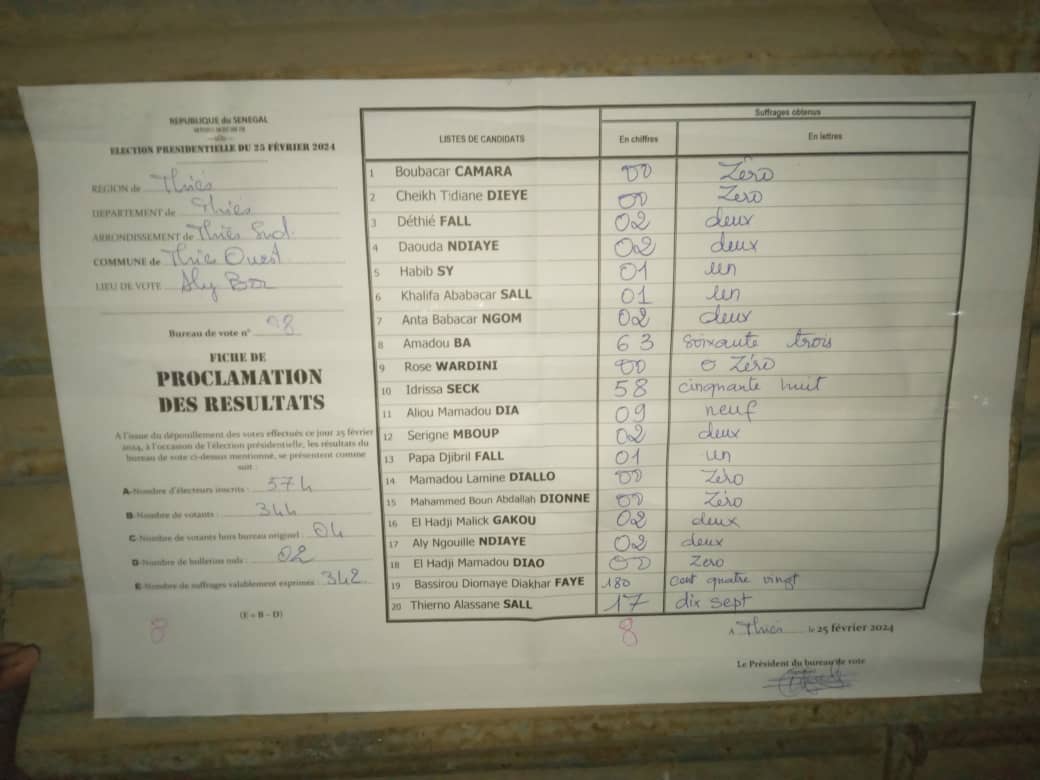 REPUBLIQUE du SENEGAL
ELECTION PRESIDENTIELLE DU 25 FÉVRIER 2024
REGION de Thiès
DEPARTEMENT de Thiès
ARRONDISSEMENT de Thiès Sud
COMMUNE de Thiès Ouest
LIEU DE VOTE Aly
Bureau de vote n° 08
FICHE DE
PROCLAMATION
DES RESULTATS
A l'issue du dépouillement des votes effectués ce jour 25 février
2024, à l'occasion de l'élection présidentielle, les résultats du
bureau de vote ci-dessus mentionné, se présentent comme
suit :
A-Nombre d'électeurs inscrits : 574
B-Nombre de votants : 344
C-Nombre de votants hors bureau originel : 04
D-Nombre de bulletins nuls : 02
E-Nombre de suffrages valablement exprimés : 342
(E = B - D)
8
LISTES DE CANDIDATS Suffrages obtenus
En chiffres En lettres
1 Boubacar CAMARA 00 Zéro
2 Cheikh Tidiane DIEYE 00 Zero
3 Déthié FALL 02 deux
4 Daouda NDIAYE 02 deux
5 Habib SY 01 un
6 Khalifa Ababacar SALL 01 un
7 Anta Babacar NGOM 02 deux
8 Amadou BA 63 soixante trois
9 Rose WARDINI 00 o Zéro
10 Idrissa SECK 58 cinquante huit
11 Aliou Mamadou DIA 09 neuf
12 Serigne MBOUP 02 deux
13 Papa Djibril FALL 01 un
14 Mamadou Lamine DIALLO 00 Zéro
15 Mahammed Boun Abdallah DIONNE 00 Zéro
16 El Hadji Malick GAKOU 02 deux
17 Aly Ngouille NDIAYE 02 deux
18 El Hadji Mamadou DIAO 00 Zero
19 Bassirou Diomaye Diakhar FAYE 180 cent quatre vingt
20 Thierno Alassane SALL 17 dix sept
8
A Thiès le 25 février 2024
Le Président du bureau de vote